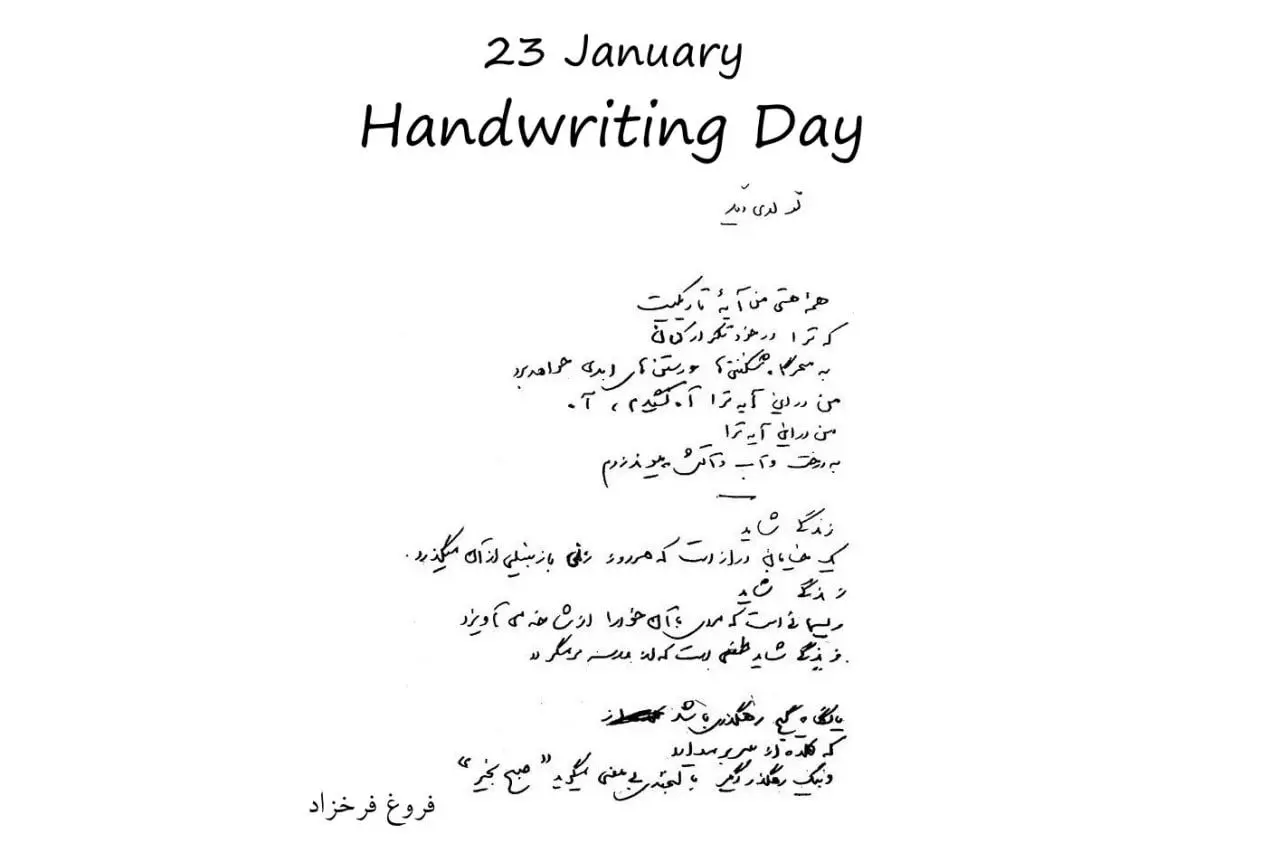 23 January
Handwriting Day
تولدی دیگر
همهٔ هستی من آیهٔ تاریکیست
که ترا در خود تکرار کنان
به سحرگاه شکفتن‌ها و رستن‌های ابدی خواهد برد
من در این آیه ترا آه کشیدم ، آه
من در این آیه ترا
به درخت و آب و آتش پیوند زدم
زندگی شاید
یک خیابان دراز است که هر روز زنی با زنبیلی از آن میگذرد.
زندگی شاید
ریسمانی است که مردی با آن خود را از شاخه می آویزد
زندگی شاید طفلی است که از مدرسه بر میگردد
یا نگاه گیج رهگذری باشد
که کلاه از سر بر میدارد
و به یک رهگذر دیگر با لبخندی بی معنی میگوید "صبح بخیر"
فروغ فرخزاد